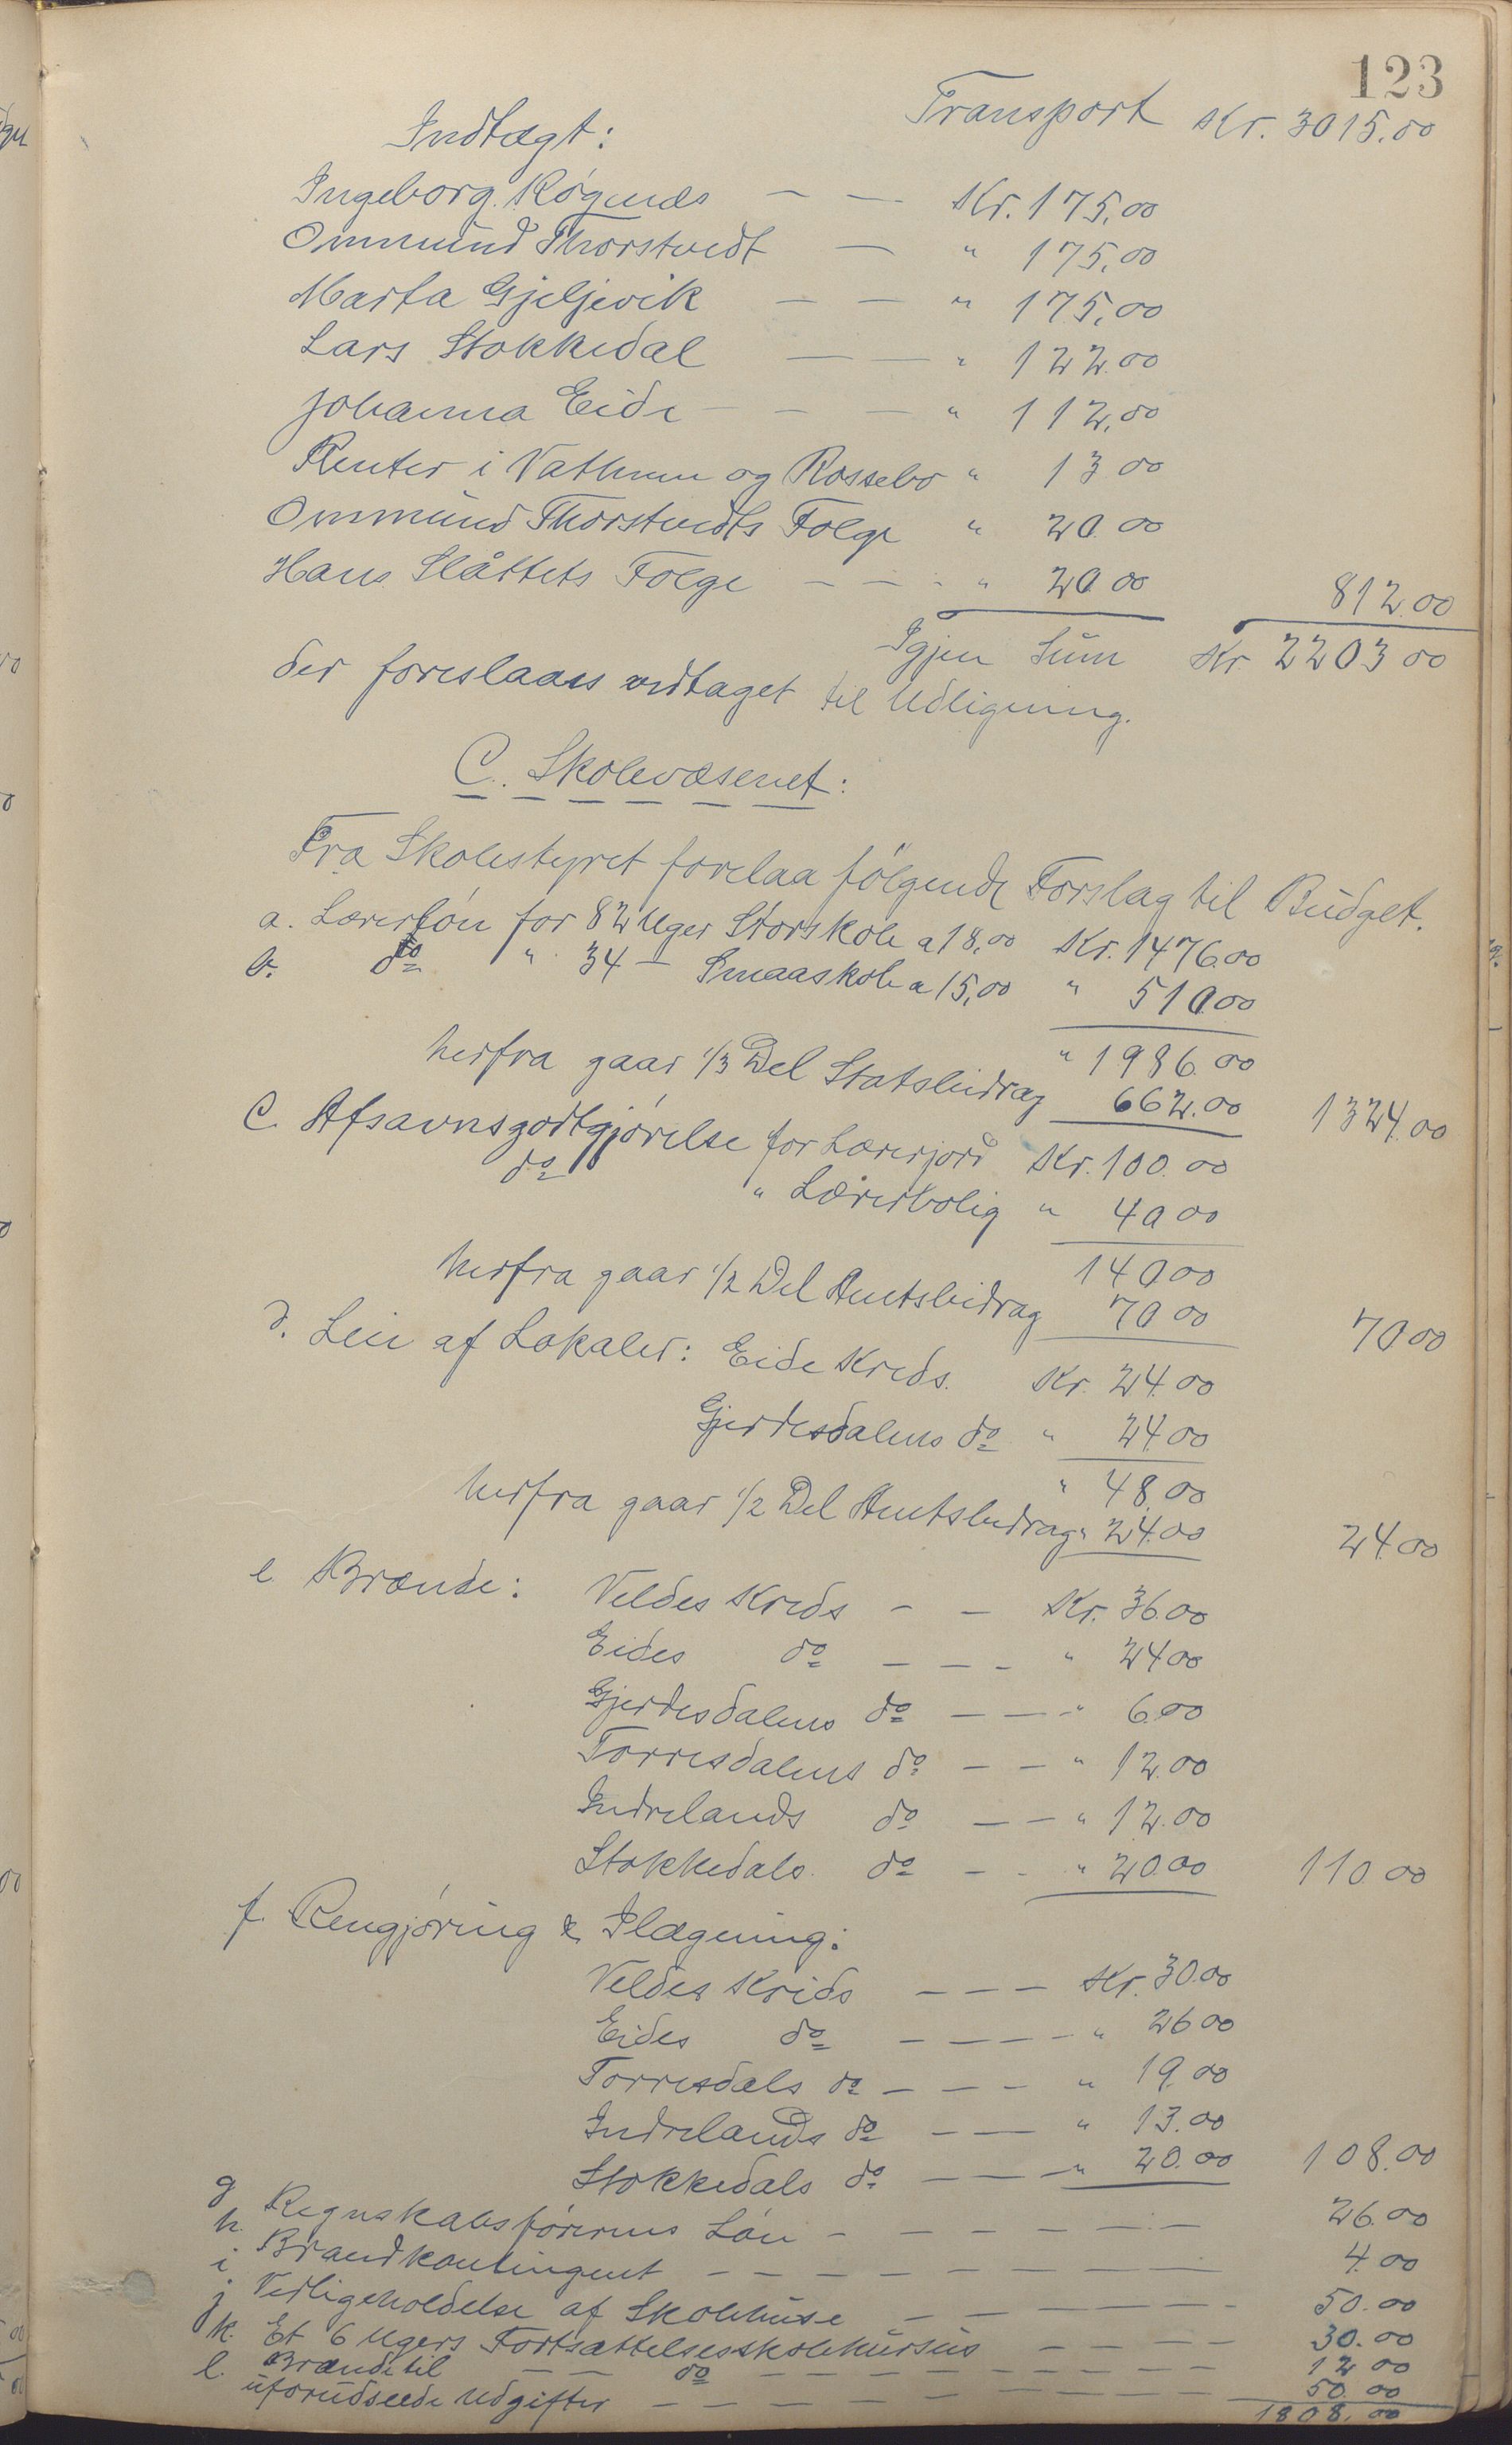 123
Transport Kr. 3015.00
Indtægt:
Ingeborg Røgnes — — Kr. 175,00
Ommund Thorstvedt — " 175,00
Marta Gjeljevik — — " 175,00
Lars Stokkedal — — " 122.00
Johanna Eide — — — " 112,00
Renter i Vathnum og Rossebo " 13 00
Ommund Thorstvedts Følge " 20.00
Hans Slåttets Følge — — " 20.00 812.00
Igjen Sum Kr. 2203 00
der foreslaaes vedtaget til Udligning.
C. Skolevæsenet:
Fra Skolestyret forelaa følgende Forslag til Budget.
a. Lærerløn for 82 Uger Storskole a 18,00 Kr. 1476.00
b. do " 34 — Smaaskole a 15,00 " 510.00
" 1986.00
herfra gaar 1/3 Del Statsbidrag 662.00 1324.00
C. Afsavnsgodtgjørelse for Lærerjord Kr. 100.00
do " Lærerbolig " 40 00
140 00
herfra gaar 1/2 Del Amtsbidrag 70 00 70 00
d. Leie af Lokaler: Eide Kreds. Kr. 24.00
Gjerdesdalens do " 24 00
" 48.00
herfra gaar 1/2 Del Amtsbidrag " 24.00 24.00
e. Brænde: Veldes Kreds — — Kr. 36.00
Eides do — — — " 24 00
Gjerdesdalens do — — " 6.00
Torresdalens do — — " 12.00
Indrelands do — — " 12.00
Stokkedals do — — " 20.00 110 00
f. Rengjøring & Ilægning:
Veldes Kreds — — — Kr. 30.00
Eides do — — — — " 26 00
Torresdals do — — — " 19.00
Indrelands do — — " 13.00
Stokkedals do — — — " 20.00 108.00
g Regnskabsførerens Løn — — — — — — 26.00
h. Brandkontingent — — — — — — — — 4.00
i Vedligeholdelse af Skolehuse — — — — — 50.00
j Et 6 Ugers Fortsættelsesskolekursus — — — — 30.00
k. Brænde til — — do — — — — — — — 12 00
l. uforudseede Udgifter — — — — — — — — 50.00
1808.00